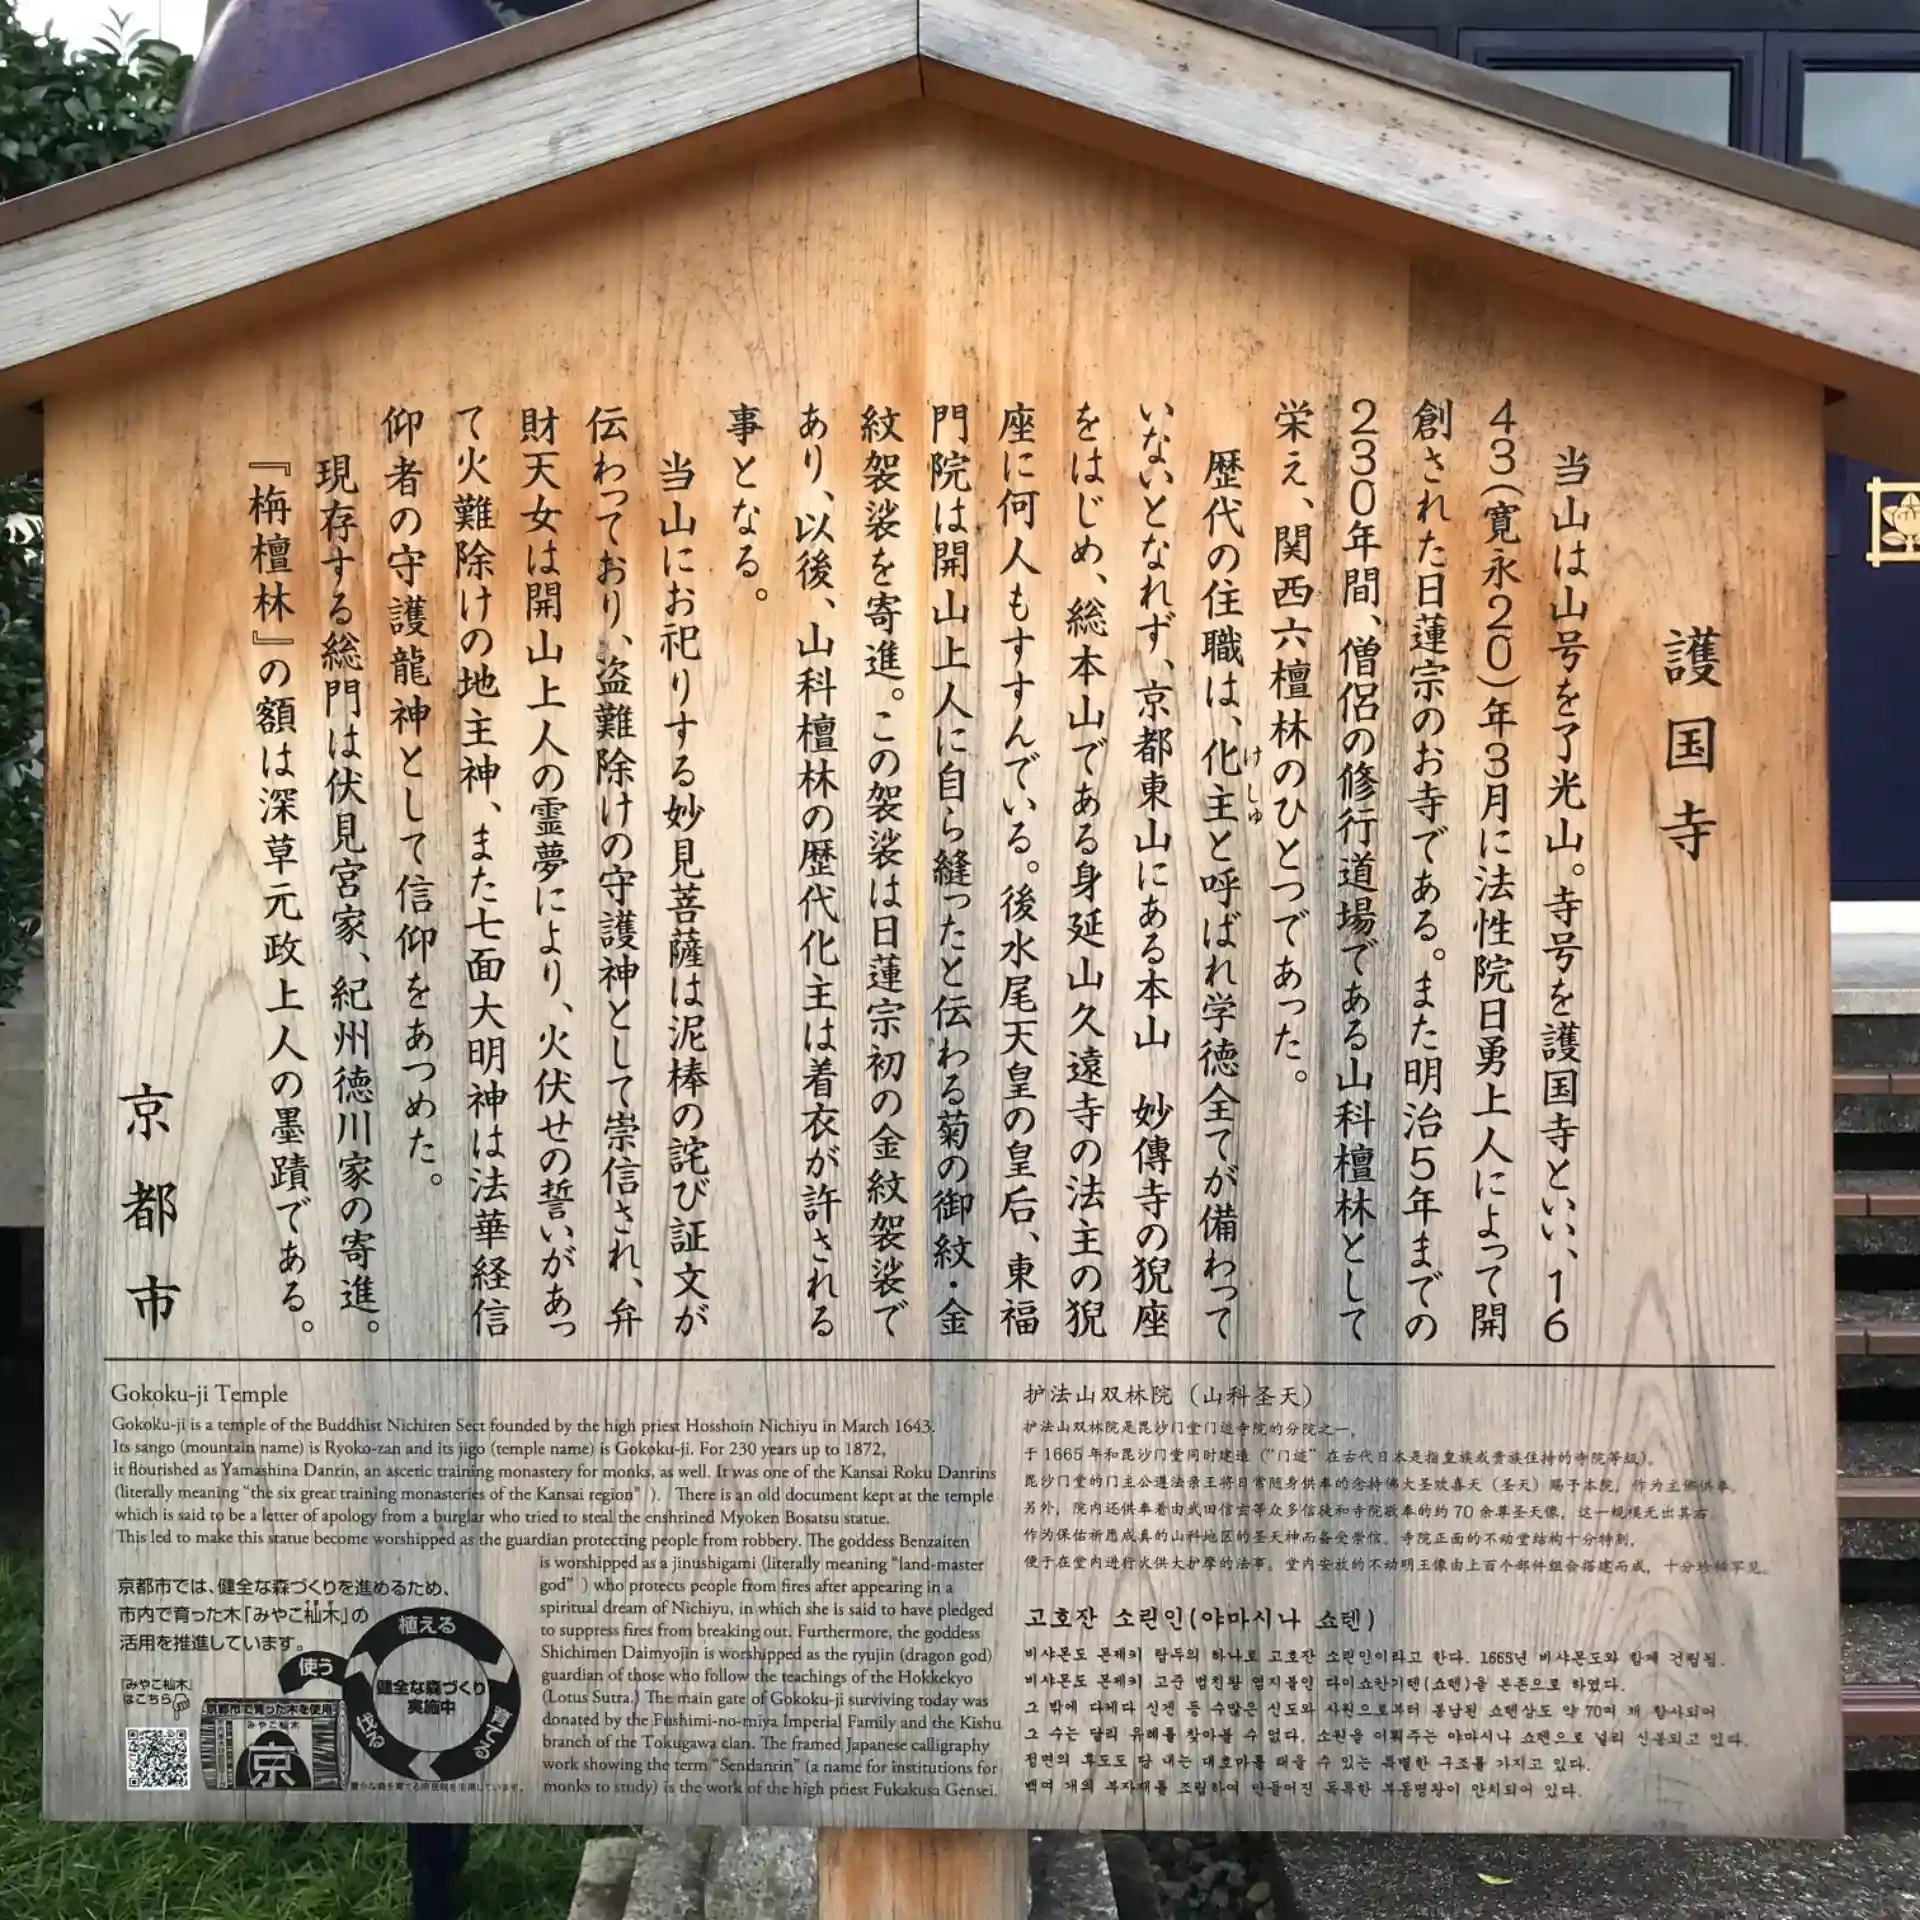 護国寺
当山は山号を了光山。寺号を護国寺といい、16
43(寛永20)年3月に法性院日勇上人によって開
創された日蓮宗のお寺である。また明治5年までの
230年間、僧侶の修行道場である山科檀林として
栄え、関西六檀林のひとつであった。
歴代の住職は、化主と呼ばれ学徳全てが備わって
けしゅ
いないとなれず、京都東山にある本山 妙傳寺の猊座
をはじめ、総本山である身延山久遠寺の法主の猊
座に何人もすすんでいる。後水尾天皇の皇后、東福
門院は開山上人に自ら縫ったと伝わる菊の御紋・金
紋袈裟を寄進。この袈裟は日蓮宗初の金紋袈裟で
あり、以後、山科檀林の歴代化主は着衣が許される
事となる。
当山にお祀りする妙見菩薩は泥棒の詫び証文が
伝わっており、盗難除けの守護神として崇信され、弁
財天女は開山上人の霊夢により、火伏せの誓いがあっ
て火難除けの地主神、また七面大明神は法華経信
仰者の守護龍神として信仰をあつめた。
現存する総門は伏見宮家、紀州徳川家の寄進。
『栴檀林』の額は深草元政上人の墨蹟である。
京都市
Gokoku-ji Temple
Gokoku-ji is a temple of the Buddhist Nichiren Sect founded by the high priest Hosshoin Nichiyu in March 1643.
Its sango (mountain name) is Ryoko-zan and its jigo (temple name) is Gokoku-ji. For 230 years up to 1872,
it flourished as Yamashina Danrin, an ascetic training monastery for monks, as well. It was one of the Kansai Roku Danrins
(literally meaning “the six great training monasteries of the Kansai region” ). There is an old document kept at the temple
which is said to be a letter of apology from a burglar who tried to steal the enshrined Myoken Bosatsu statue.
This led to make this statue become worshipped as the guardian protecting people from robbery. The goddess Benzaiten
is worshipped as a jinushigami (literally meaning “land-master
god” ) who protects people from fires after appearing in a
spiritual dream of Nichiyu, in which she is said to have pledged
to suppress fires from breaking out. Furthermore, the goddess
Shichimen Daimyojin is worshipped as the ryujin (dragon god)
guardian of those who follow the teachings of the Hokkekyo
(Lotus Sutra.) The main gate of Gokoku-ji surviving today was
donated by the Fushimi-no-miya Imperial Family and the Kishu
branch of the Tokugawa clan. The framed Japanese calligraphy
work showing the term “Sendanrin” (a name for institutions for
monks to study) is the work of the high priest Fukakusa Gensei.
京都市では、健全な森づくりを進めるため、
市内で育った木「みやこ杣木」の
活用を推進しています。
「みやこ杣木」
はこちら
京都市で育った木を使用
みやこ杣木
京
植える
育てる
伐る
使う
健全な森づくり
実施中
护法山双林院（山科圣天）
护法山双林院是毘沙门堂门迹寺院的分院之一，
于 1665 年和毘沙门堂同时建造（“门迹”在古代日本是指皇族或贵族住持的寺院等级）。
毘沙门堂的门主公遵法亲王将日常随身供奉的念持佛大圣欢喜天（圣天）赐予本院，作为主佛供奉。
另外，院内还供奉着由武田信玄等众多信徒和寺院敬奉的约 70 余尊圣天像，这一规模无出其右，
作为保佑祈愿成真的山科地区的圣天神而备受崇信。寺院正面的不动堂结构十分特别，
便于在堂内进行火供大护摩的法事。堂内安放的不动明王像由上百个部件组合搭建而成，十分珍稀罕见。
고호잔 소린인(야마시나 쇼텐)
비샤몬도 몬제키 탑두의 하나로 고호잔 소린인이라고 한다. 1665년 비샤몬도와 함께 건립됨.
비샤몬도 몬제키 고준 법친왕 염지불인 다이쇼칸기텐(쇼텐)을 본존으로 하였다.
그 밖에 다케다 신겐 등 수많은 신도와 사원으로부터 봉납된 쇼텐상도 약 70여 채 합사되어
그 수는 달리 유례를 찾아볼 수 없다. 소원을 이뤄주는 야마시나 쇼텐으로 널리 신봉되고 있다.
정면의 후도도 당 내는 대호마를 태울 수 있는 특별한 구조를 가지고 있다.
백여 개의 부자재를 조립하여 만들어진 독특한 부동명왕이 안치되어 있다.